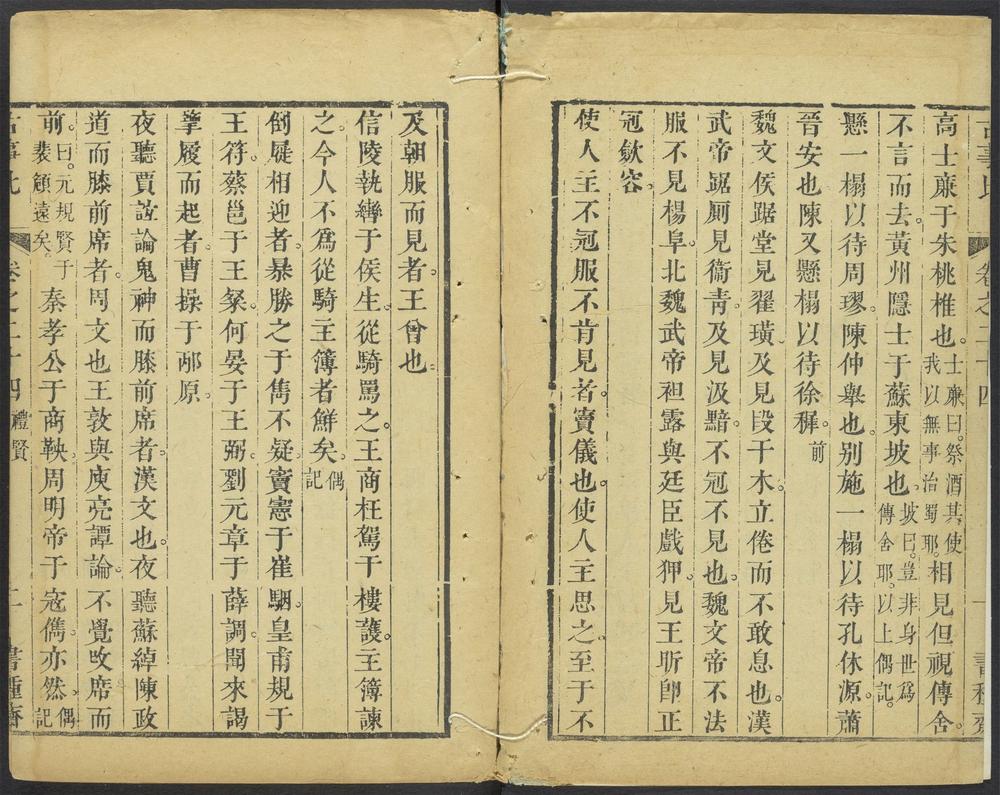 古事比 卷之二十四 一 書種齋
高士廉于朱桃椎也。士廉曰。祭酒其使我以無事治蜀耶。相見但視傳舍。
不言而去。黃州隱士于蘇東坡也。坡曰。豈非身世爲傳舍耶。以上偶記。
懸一榻以待周璆。陳仲舉也。别施一榻以待孔休源。蕭
晉安也。陳又懸榻以待徐穉。前
魏文侯踞堂見翟璜。及見段干木。立倦而不敢息也。漢
武帝踞厠見衞靑。及見汲黯。不冠不見也。魏文帝不法
服不見楊阜。北魏武帝袒露與廷臣戲狎。見王昕卽正
冠斂容。
使人主不冠服不肯見者。竇儀也。使人主思之。至于不
及朝服而見者。王曾也。
信陵執轡于侯生。從騎罵之。王商枉駕于樓護。主簿諫
之。今人不爲從騎主簿者鮮矣。偶記
倒屣相迎者。暴勝之于雋不疑。竇憲于崔駰。皇甫規于
王符。蔡邕于王粲。何晏于王弼。劉元章于薛調。聞來謁
摯履而起者。曹操于邴原。
夜聽賈誼論鬼神而膝前席者。漢文也。夜聽蘇綽陳政
道而膝前席者。周文也。王敦與庾亮譚論。不覺攺席而
前。曰。元規賢于裴頠遠矣。秦孝公于商鞅。周明帝于寇儁。亦然。偶記
古事比 卷之二十四 禮賢 二 書種齋